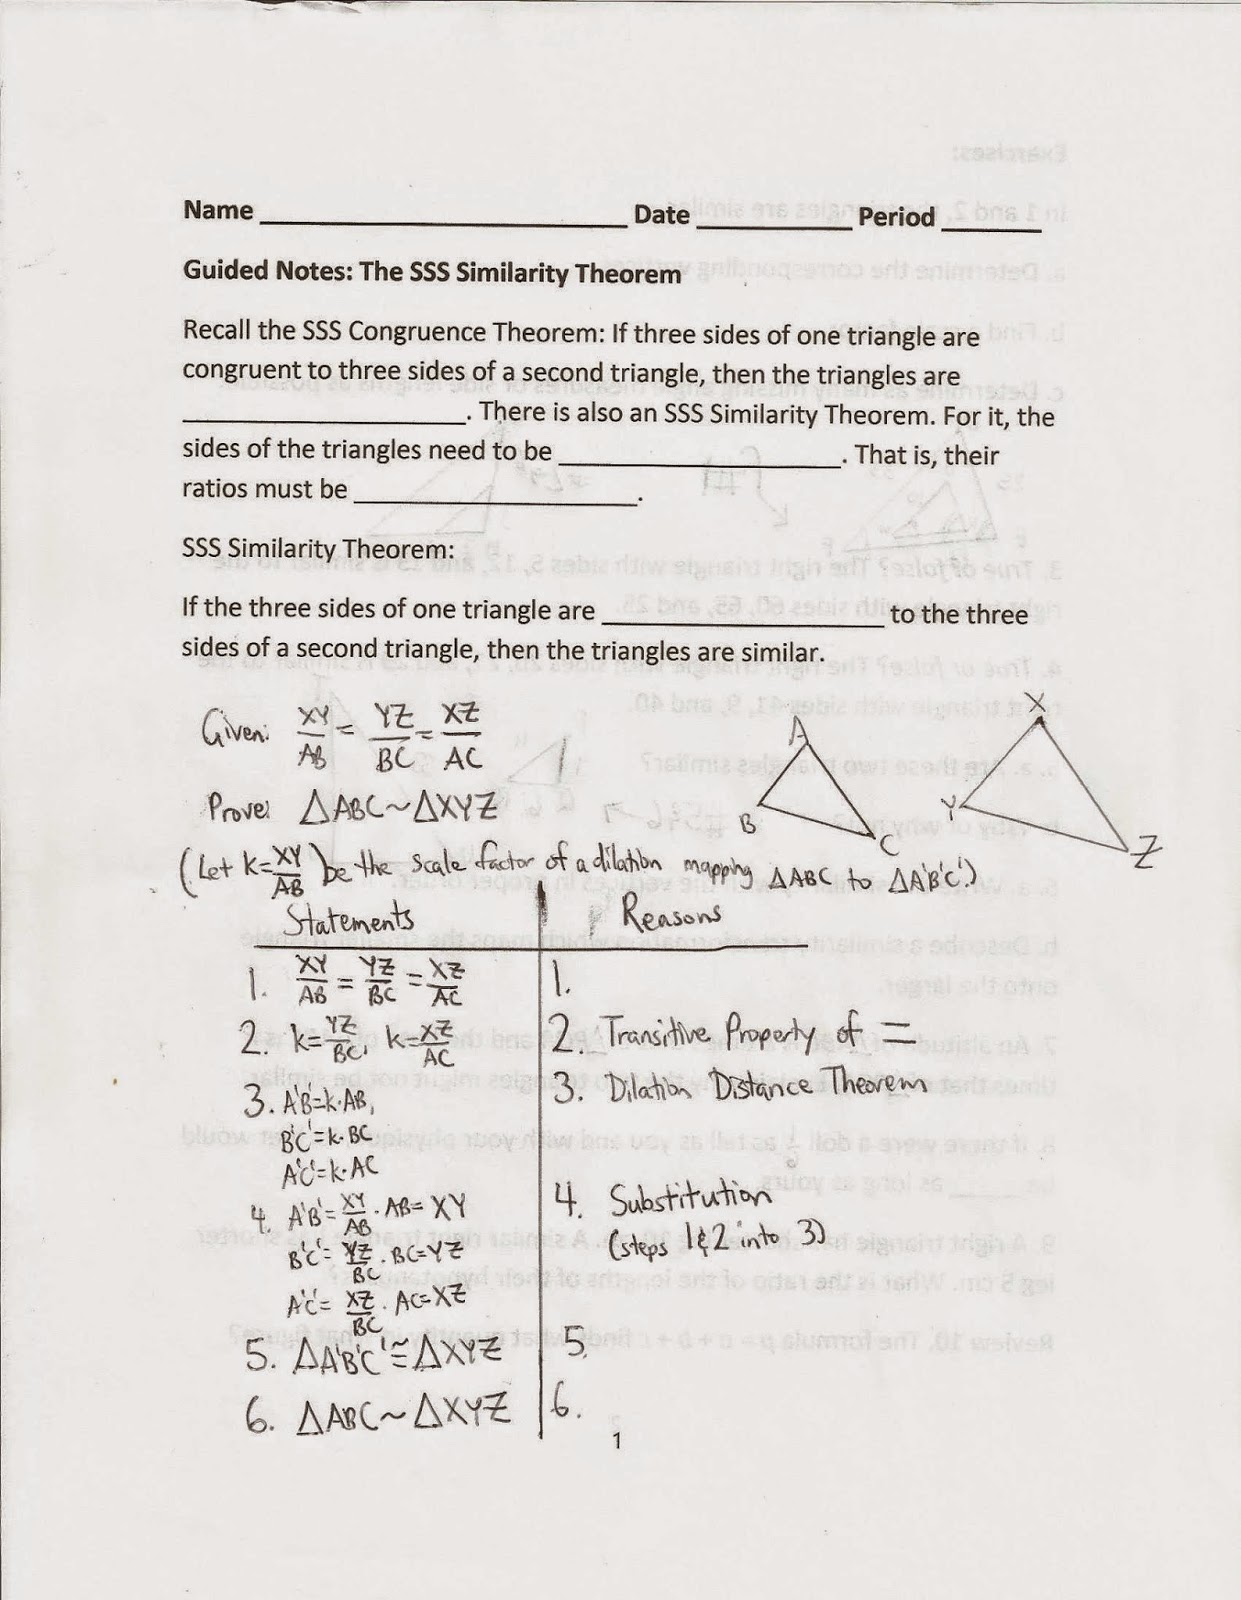 Name ____________ Date ________ Period ______
Guided Notes: The SSS Similarity Theorem
Recall the SSS Congruence Theorem: If three sides of one triangle are
congruent to three sides of a second triangle, then the triangles are
____________. There is also an SSS Similarity Theorem. For it, the
sides of the triangles need to be ____________. That is, their
ratios must be ____________.
SSS Similarity Theorem:
If the three sides of one triangle are ____________ to the three
sides of a second triangle, then the triangles are similar.
Given: XY/AB = YZ/BC = XZ/AC
Prove: △ABC~△XYZ
A
B
C
X
Y
Z
(Let k=XY/AB) be the scale factor of a dilation mapping △ABC to △A'B'C'.)
Statements Reasons
1. XY/AB = YZ/BC = XZ/AC 1.
2. k=YZ/BC, k=XZ/AC 2. Transitive Property of =
3. A'B'=k·AB, 3. Dilation Distance Theorem
B'C'=k·BC
A'C'=k·AC
4. A'B'=XY/AB·AB=XY 4. Substitution
B'C'=YZ/BC·BC=YZ (steps 1&2 into 3)
A'C'=XZ/BC·AC=XZ
5. △A'B'C'≅△XYZ 5.
6. △ABC~△XYZ 6.
1